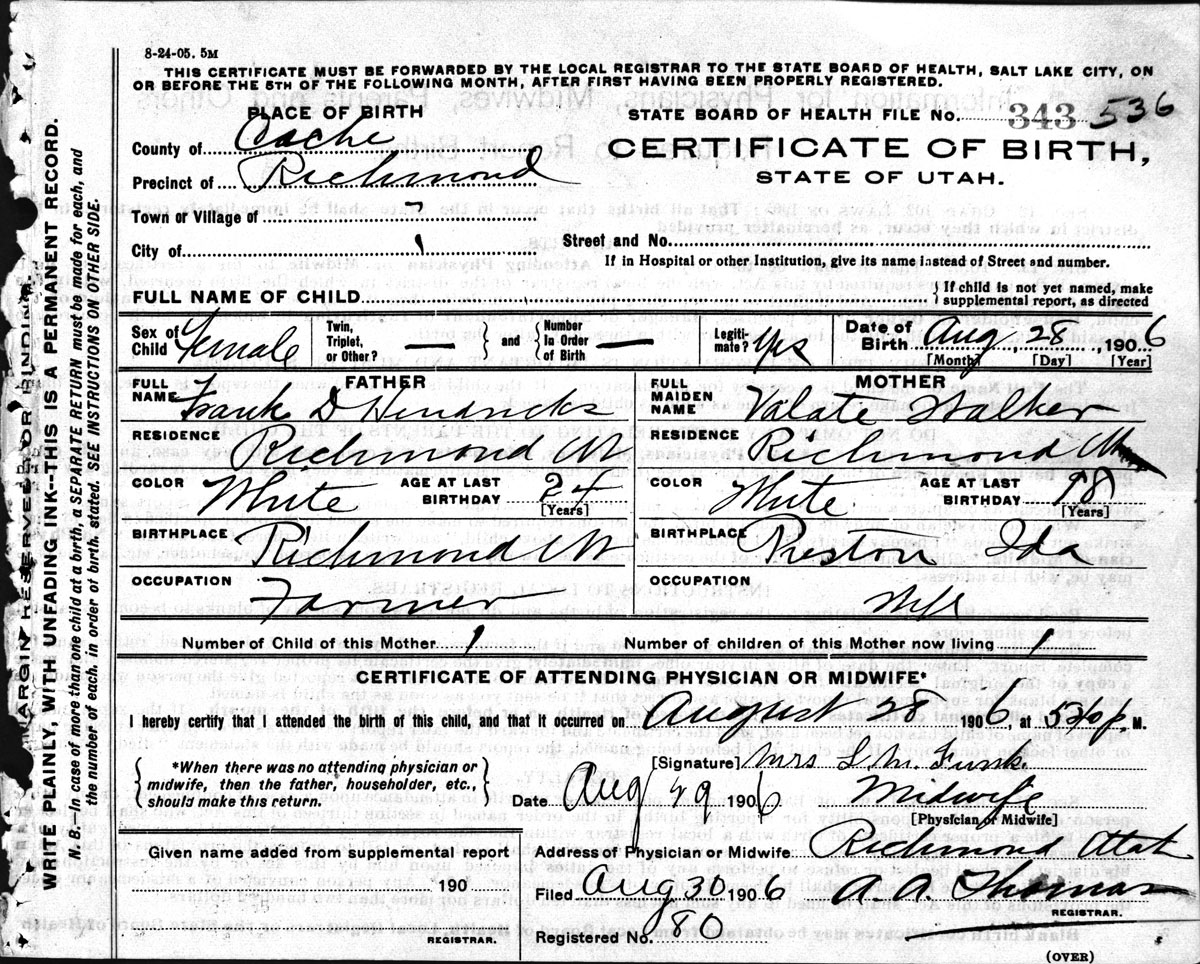 8-24-05. 5M
THIS CERTIFICATE MUST BE FORWARDED BY THE LOCAL REGISTRAR TO THE STATE BOARD OF HEALTH, SALT LAKE CITY, ON
OR BEFORE THE 5TH OF THE FOLLOWING MONTH, AFTER FIRST HAVING BEEN PROPERLY REGISTERED.
PLACE OF BIRTH
STATE BOARD OF HEALTH FILE No. 343 536
County of Cache
CERTIFICATE OF BIRTH,
Precinct of Richmond
STATE OF UTAH.
Town or Village of
City of
Street and No.
If in Hospital or other Institution, give its name instead of Street and number.
FULL NAME OF CHILD
{ If child is not yet named, make
supplemental report, as directed
Sex of Child Female
Twin, Triplet, or Other? — { and } Number In Order of Birth —
Legiti-mate? Yes
Date of Birth Aug 28, 1906
[Month] [Day] [Year]
FATHER
FULL NAME Frank D Hendricks
RESIDENCE Richmond
COLOR White AGE AT LAST BIRTHDAY 24 [Years]
BIRTHPLACE Richmond
OCCUPATION Farmer
MOTHER
FULL MAIDEN NAME Valate Walker
RESIDENCE Richmond
COLOR White AGE AT LAST BIRTHDAY [Years]
BIRTHPLACE Preston Ida
OCCUPATION Wife
Number of Child of this Mother 1 Number of children of this Mother now living 1
CERTIFICATE OF ATTENDING PHYSICIAN OR MIDWIFE*
I hereby certify that I attended the birth of this child, and that it occurred on August 28 1906, at 530 p M.
{ *When there was no attending physician or
midwife, then the father, householder, etc.,
should make this return. }
[Signature] Mrs Funk
Date Aug 29 1906 Midwife
[Physician or Midwife]
Given name added from supplemental report
Address of Physician or Midwife Richmond Utah
190
Filed Aug 30 1906 A. A. Thomas
REGISTRAR.
REGISTRAR.
Registered No. 80
(OVER)
MARGIN RESERVED FOR BINDING
WRITE PLAINLY, WITH UNFADING INK--THIS IS A PERMANENT RECORD.
N. B.--In case of more than one child at a birth, a SEPARATE RETURN must be made for each, and
the number of each, in order of birth, stated. SEE INSTRUCTIONS ON OTHER SIDE.